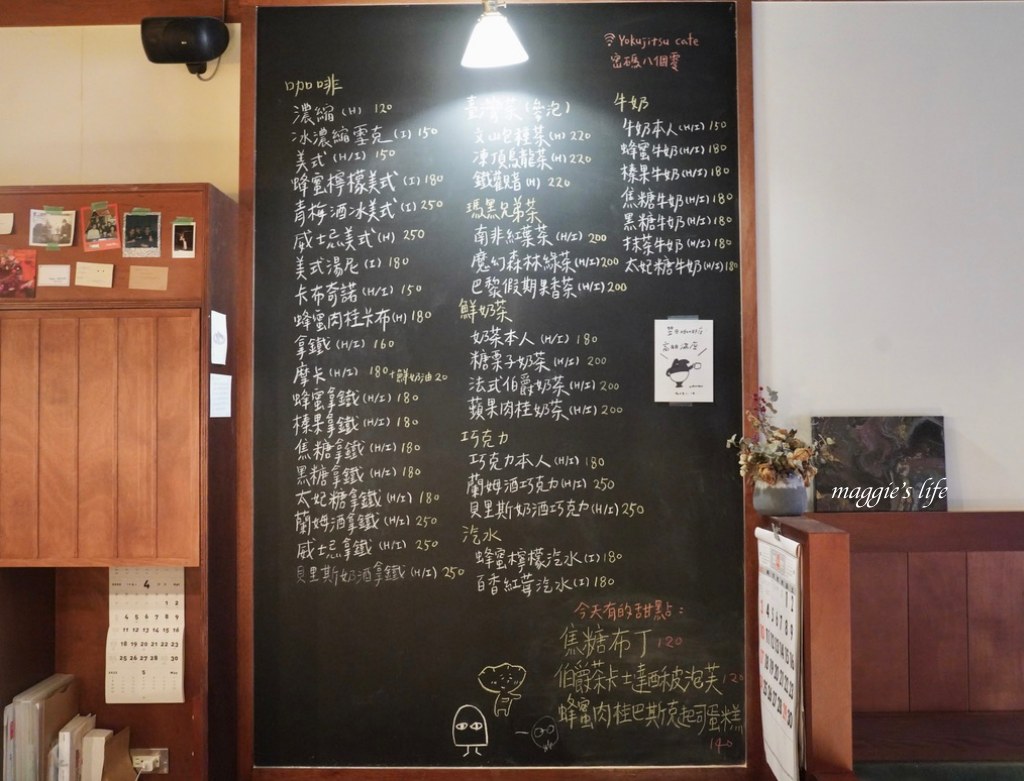 Yokujitsu cafe
密碼八個零
咖啡
濃縮 (H) 120
冰濃縮雪克 (I) 150
美式 (H/I) 150
蜂蜜檸檬美式 (I) 180
青梅酒冰美式 (I) 250
威士忌美式 (H) 250
美式湯尼 (I) 180
卡布奇諾 (H/I) 150
蜂蜜肉桂卡布 (H) 180
拿鐵 (H/I) 160
摩卡 (H/I) 180 +鮮奶油20
蜂蜜拿鐵 (H/I) 180
榛果拿鐵 (H/I) 180
焦糖拿鐵 (H/I) 180
黑糖拿鐵 (H/I) 180
太妃糖拿鐵 (H/I) 180
蘭姆酒拿鐵 (H/I) 250
威士忌拿鐵 (H/I) 250
貝里斯奶酒拿鐵 (H/I) 250
臺灣茶
文山包種茶 (H) 220
凍頂烏龍茶 (H) 220
鐵觀音 (H) 220
瑪黑兄弟茶
南非紅葉茶 (H/I) 200
魔幻森林綠茶 (H/I) 200
巴黎假期果香茶 (H/I) 200
鮮奶茶
奶茶本人 (H/I) 180
糖栗子奶茶 (H/I) 200
法式伯爵奶茶 (H/I) 200
蘋果肉桂奶茶 (H/I) 200
巧克力
巧克力本人 (H/I) 180
蘭姆酒巧克力 (H/I) 250
貝里斯奶酒巧克力 (H/I) 250
汽水
蜂蜜檸檬汽水 (I) 180
百香紅莓汽水 (I) 180
牛奶
牛奶本人 (H/I) 150
蜂蜜牛奶 (H/I) 180
榛果牛奶 (H/I) 180
焦糖牛奶 (H/I) 180
黑糖牛奶 (H/I) 180
抹茶牛奶 (H/I) 180
太妃糖牛奶 (H/I) 180
今天有的甜點：
焦糖布丁 120
伯爵茶卡士達酥皮泡芙 120
蜂蜜肉桂巴斯克起司蛋糕
140
maggie's life
4